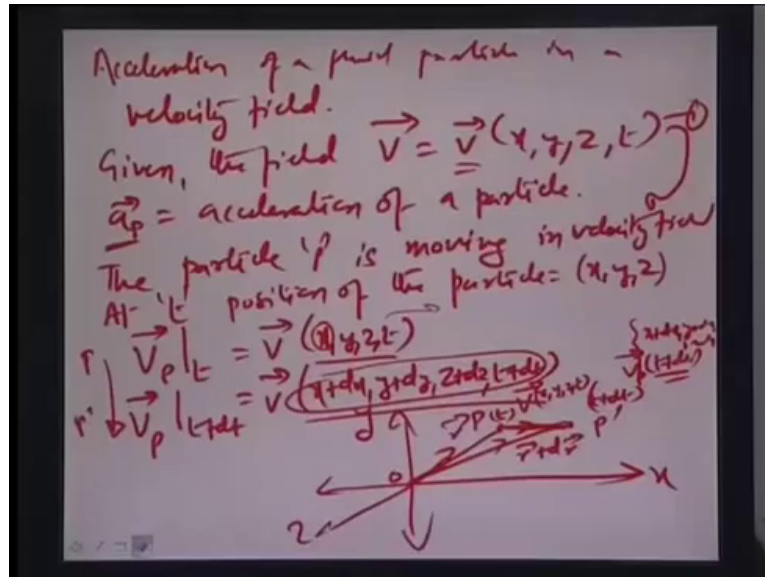 Acceleration of a fluid particle in a
velocity field.
Given, the field V⃗ = v⃗ (x, y, z, t) — ①
a⃗p = acceleration of a particle.
The particle 'P' is moving in velocity field
At 't' position of the particle = (x, y, z)
P V⃗p|t = V⃗ (x, y, z, t)
P' V⃗p|t+dt = V⃗ (x+dx, y+dy, z+dz, t+dt)
V⃗p (t+dt)
y P(t) (t+dt) P'
r⃗ r⃗+dr⃗
o x
z